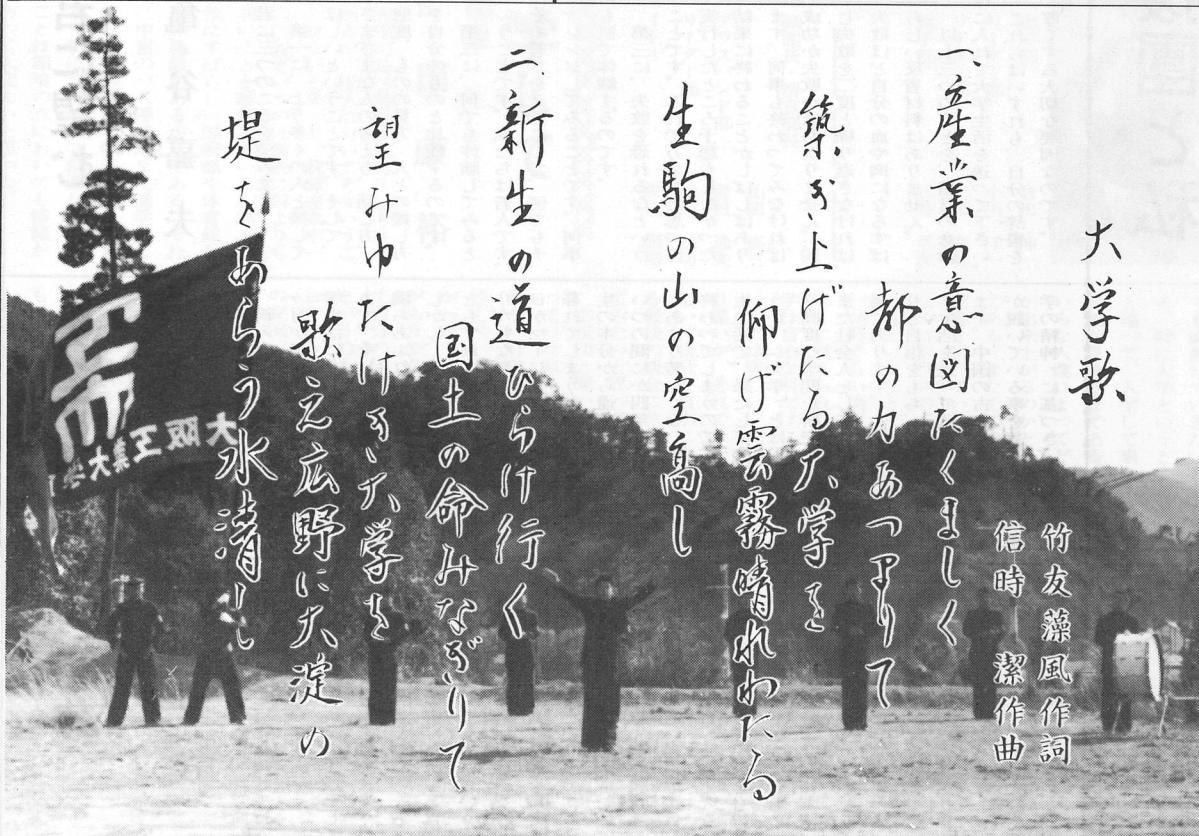 大学歌
竹友藻風作詞
信時 潔作曲
一、産業の意図たくましく
都の力あつまりて
築き上げたる大学を
仰げ雲霧晴れわたる
生駒の山の空高し
二、新生の道ひらけ行く
国土の命みなぎりて
望みゆたけき大学を
歌え広野に大淀の
堤をあらう水清し
大阪工業大学